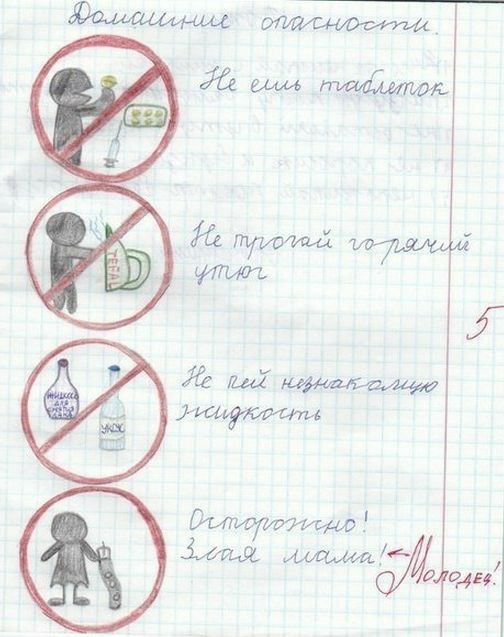 Домашние опасности.
Не ешь таблеток
Не трогай горячий
утюг
TEFAL
Не пей незнакомую
жидкость
ЖИДКОСТЬ
ДЛЯ
СНЯТИЯ
ЛАКА
УКСУС
5
Осторожно!
Злая мама!
Молодец!